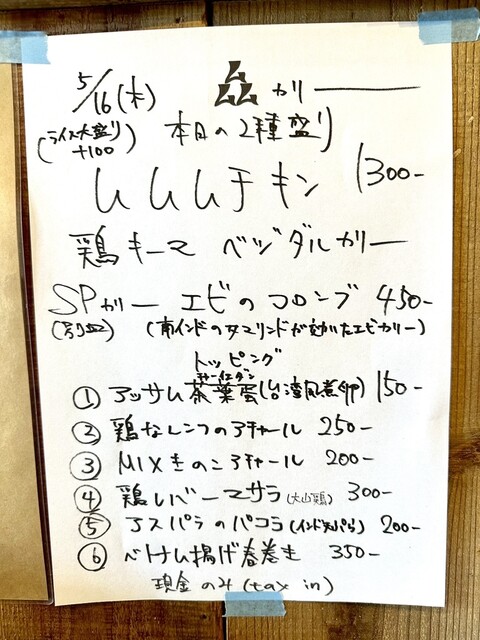 5/16(木) ムムム カリー
(ライス大盛り +100) 本日の2種盛り
ムムムチキン 1300-
鶏キーマ ベジダルカリー
SPカリー エビのコロンブ 450-
(別皿) (南インドのタマリンドが効いたエビカリー)
トッピング
① アッサム茶葉蛋(台湾風煮卵) 150-
② 鶏なんこつのアチャール 250-
③ MIXきのこアチャール 200-
④ 鶏レバーマサラ(大山鶏) 300-
⑤ アスパラのパコラ(インド天ぷら) 200-
⑥ ベトナム揚げ春巻き 350-
現金のみ(tax in)